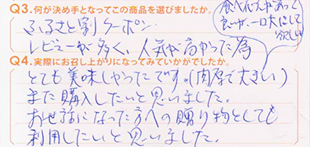 Q3.何が決め手となってこの商品を選びましたか。
ふるさと割クーポン
レビューが多く、人気が高かった為
食べれん工があって
食いが、一口大にして
欲しい
Q4.実際にお召し上がりになってみていかがでしたか。
とても美味しかったです。(肉厚で大きい)
また購入したいと思いました。
お世話になった方への贈り物としても
利用したいと思いました。